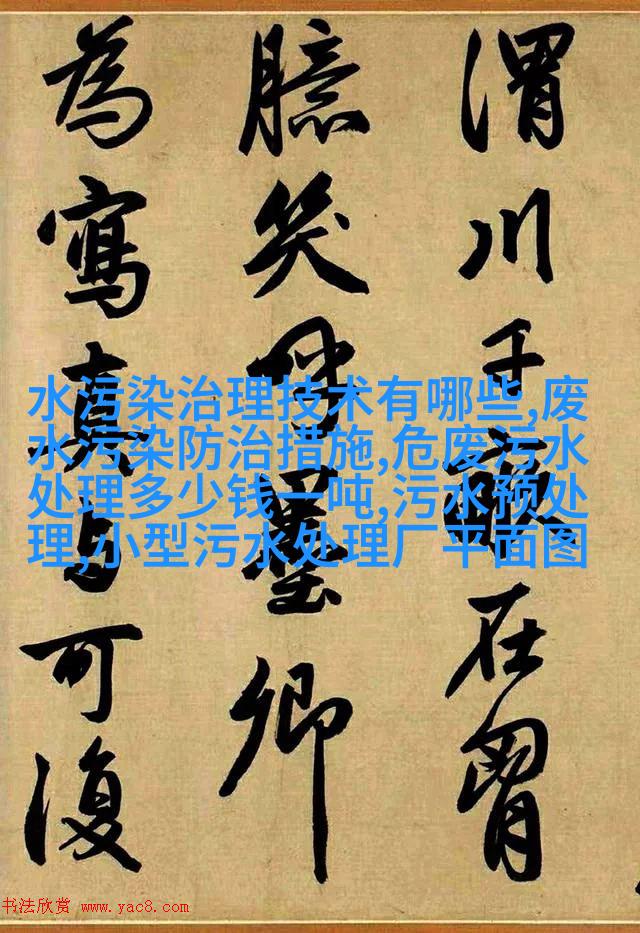 渭川千畝在胷
臆笑呼墨卿
為寫真与可復
水污染治理技术有哪些,废
水污染防治措施,危废污水
处理多少钱一吨,污水预处
理,小型污水处理厂平面图
书法欣赏 www.yac8.com